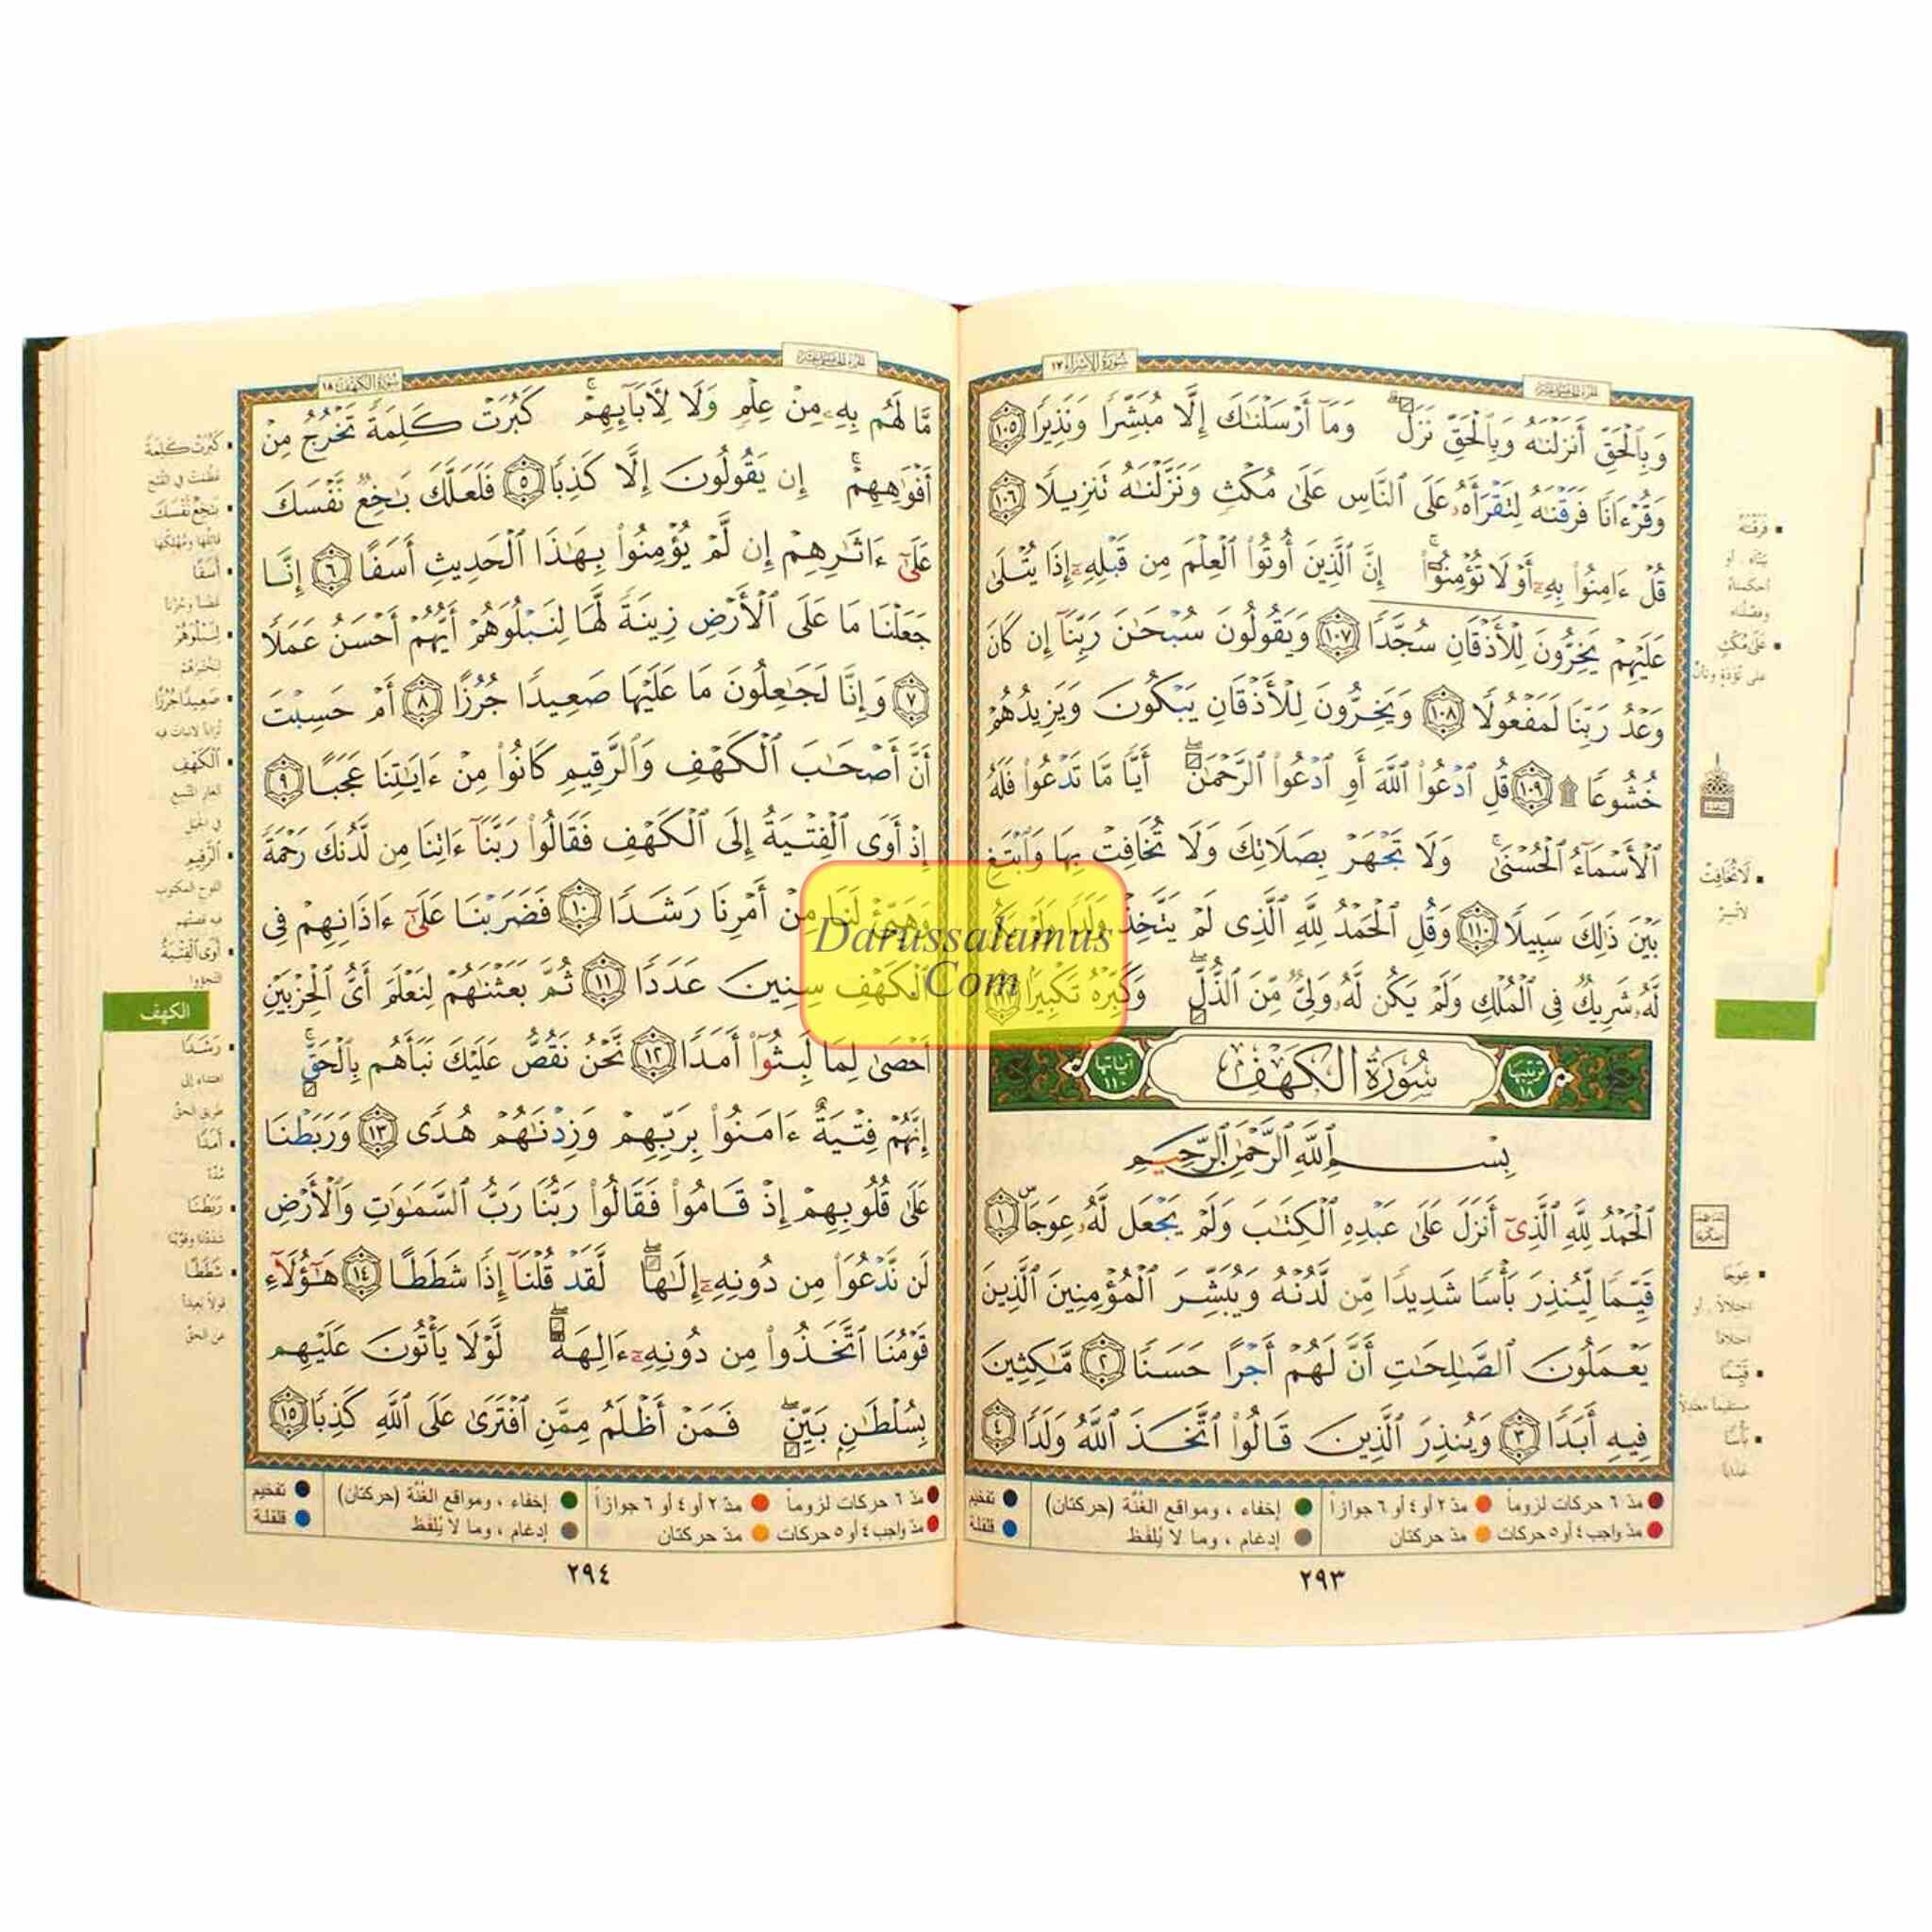 سورة الإسراء ١٧
وَبِالْحَقِّ أَنزَلْنَٰهُ وَبِالْحَقِّ نَزَلَ وَمَآ أَرْسَلْنَٰكَ إِلَّا مُبَشِّرًا وَنَذِيرًا ١٠٥
وَقُرْءَانًا فَرَقْنَٰهُ لِتَقْرَأَهُۥ عَلَى ٱلنَّاسِ عَلَىٰ مُكْثٍ وَنَزَّلْنَٰهُ تَنزِيلًا ١٠٦
قُلْ ءَامِنُوا۟ بِهِۦٓ أَوْ لَا تُؤْمِنُوٓا۟ ۚ إِنَّ ٱلَّذِينَ أُوتُوا۟ ٱلْعِلْمَ مِن قَبْلِهِۦٓ إِذَا يُتْلَىٰ
عَلَيْهِمْ يَخِرُّونَ لِلْأَذْقَانِ سُجَّدًا ١٠٧ وَيَقُولُونَ سُبْحَٰنَ رَبِّنَآ إِن كَانَ
وَعْدُ رَبِّنَا لَمَفْعُولًا ١٠٨ وَيَخِرُّونَ لِلْأَذْقَانِ يَبْكُونَ وَيَزِيدُهُمْ
خُشُوعًا ۩ ١٠٩ قُلِ ٱدْعُوا۟ ٱللَّهَ أَوِ ٱدْعُوا۟ ٱلرَّحْمَٰنَ ۖ أَيًّا مَّا تَدْعُوا۟ فَلَهُ
ٱلْأَسْمَآءُ ٱلْحُسْنَىٰ ۚ وَلَا تَجْهَرْ بِصَلَاتِكَ وَلَا تُخَافِتْ بِهَا وَٱبْتَغِ
بَيْنَ ذَٰلِكَ سَبِيلًا ١١٠ وَقُلِ ٱلْحَمْدُ لِلَّهِ ٱلَّذِى لَمْ يَتَّخِذْ وَلَدًا وَلَمْ يَكُن
لَّهُۥ شَرِيكٌ فِى ٱلْمُلْكِ وَلَمْ يَكُن لَّهُۥ وَلِىٌّ مِّنَ ٱلذُّلِّ ۖ وَكَبِّرْهُ تَكْبِيرًا ١١١
ترتيبها ١٨ سُورَةُ الكَهْف آياتها ١١٠
بِسْمِ ٱللَّهِ ٱلرَّحْمَٰنِ ٱلرَّحِيمِ
ٱلْحَمْدُ لِلَّهِ ٱلَّذِىٓ أَنزَلَ عَلَىٰ عَبْدِهِ ٱلْكِتَٰبَ وَلَمْ يَجْعَل لَّهُۥ عِوَجَا ۜ ١
قَيِّمًا لِّيُنذِرَ بَأْسًا شَدِيدًا مِّن لَّدُنْهُ وَيُبَشِّرَ ٱلْمُؤْمِنِينَ ٱلَّذِينَ
يَعْمَلُونَ ٱلصَّٰلِحَٰتِ أَنَّ لَهُمْ أَجْرًا حَسَنًا ٢ مَّٰكِثِينَ
فِيهِ أَبَدًا ٣ وَيُنذِرَ ٱلَّذِينَ قَالُوا۟ ٱتَّخَذَ ٱللَّهُ وَلَدًا ٤
فَرَقْنَٰهُ
بيّنّاه . أو
أحكمناه
وفصّلناه
عَلَىٰ مُكْثٍ
على تُؤَدَةٍ وتأنٍّ
لَا تُخَافِتْ
لا تُسِرّ
عِوَجًا
اختلالاً . أو
اختلافاً
قَيِّمًا
مستقيماً معتدلاً
بَأْسًا
عذاباً
مدّ ٦ حركات لزوماً مدّ ٢ أو ٤ أو ٦ جوازاً إخفاء ، ومواقع الغُنَّة (حركتان) تفخيم
مدّ واجب ٤ أو ٥ حركات مدّ حركتان إدغام ، وما لا يُلفَظ قلقلة
٢٩٣
سورة الكهف ١٨
مَّا لَهُم بِهِۦ مِنْ عِلْمٍ وَلَا لِـَٔابَآئِهِمْ ۚ كَبُرَتْ كَلِمَةً تَخْرُجُ مِنْ
أَفْوَٰهِهِمْ ۚ إِن يَقُولُونَ إِلَّا كَذِبًا ٥ فَلَعَلَّكَ بَٰخِعٌ نَّفْسَكَ
عَلَىٰٓ ءَاثَٰرِهِمْ إِن لَّمْ يُؤْمِنُوا۟ بِهَٰذَا ٱلْحَدِيثِ أَسَفًا ٦ إِنَّا
جَعَلْنَا مَا عَلَى ٱلْأَرْضِ زِينَةً لَّهَا لِنَبْلُوَهُمْ أَيُّهُمْ أَحْسَنُ عَمَلًا
٧ وَإِنَّا لَجَٰعِلُونَ مَا عَلَيْهَا صَعِيدًا جُرُزًا ٨ أَمْ حَسِبْتَ
أَنَّ أَصْحَٰبَ ٱلْكَهْفِ وَٱلرَّقِيمِ كَانُوا۟ مِنْ ءَايَٰتِنَا عَجَبًا ٩
إِذْ أَوَى ٱلْفِتْيَةُ إِلَى ٱلْكَهْفِ فَقَالُوا۟ رَبَّنَآ ءَاتِنَا مِن لَّدُنكَ رَحْمَةً
وَهَيِّئْ لَنَا مِنْ أَمْرِنَا رَشَدًا ١٠ فَضَرَبْنَا عَلَىٰٓ ءَاذَانِهِمْ فِى
ٱلْكَهْفِ سِنِينَ عَدَدًا ١١ ثُمَّ بَعَثْنَٰهُمْ لِنَعْلَمَ أَىُّ ٱلْحِزْبَيْنِ
أَحْصَىٰ لِمَا لَبِثُوٓا۟ أَمَدًا ١٢ نَّحْنُ نَقُصُّ عَلَيْكَ نَبَأَهُم بِٱلْحَقِّ ۚ
إِنَّهُمْ فِتْيَةٌ ءَامَنُوا۟ بِرَبِّهِمْ وَزِدْنَٰهُمْ هُدًى ١٣ وَرَبَطْنَا
عَلَىٰ قُلُوبِهِمْ إِذْ قَامُوا۟ فَقَالُوا۟ رَبُّنَا رَبُّ ٱلسَّمَٰوَٰتِ وَٱلْأَرْضِ
لَن نَّدْعُوَا۟ مِن دُونِهِۦٓ إِلَٰهًا ۖ لَّقَدْ قُلْنَآ إِذًا شَطَطًا ١٤ هَٰٓؤُلَآءِ
قَوْمُنَا ٱتَّخَذُوا۟ مِن دُونِهِۦٓ ءَالِهَةً ۖ لَّوْلَا يَأْتُونَ عَلَيْهِم
بِسُلْطَٰنٍۭ بَيِّنٍ ۖ فَمَنْ أَظْلَمُ مِمَّنِ ٱفْتَرَىٰ عَلَى ٱللَّهِ كَذِبًا ١٥
كَبُرَتْ كَلِمَةً
عَظُمَتْ في القُبْح
بَٰخِعٌ نَّفْسَكَ
قاتلُها ومُهلكُها
أَسَفًا
غضباً وحُزناً
لِنَبْلُوَهُمْ
لِنختبرهم
صَعِيدًا جُرُزًا
تُراباً لا نبات فيه
ٱلْكَهْفِ
الغار المتّسع
في الجبل
ٱلرَّقِيمِ
اللوح المكتوب
فيه قصّتهم
أَوَى ٱلْفِتْيَةُ
التجؤوا
الكهف
رَشَدًا
اهتداء إلى
طريق الحقّ
أَمَدًا
مُدّة
رَبَطْنَا
شددنا وقوّينا
شَطَطًا
قولاً بعيداً
عن الحقّ
مدّ ٦ حركات لزوماً مدّ ٢ أو ٤ أو ٦ جوازاً إخفاء ، ومواقع الغُنَّة (حركتان) تفخيم
مدّ واجب ٤ أو ٥ حركات مدّ حركتان إدغام ، وما لا يُلفَظ قلقلة
٢٩٤
Darussalamus
Com